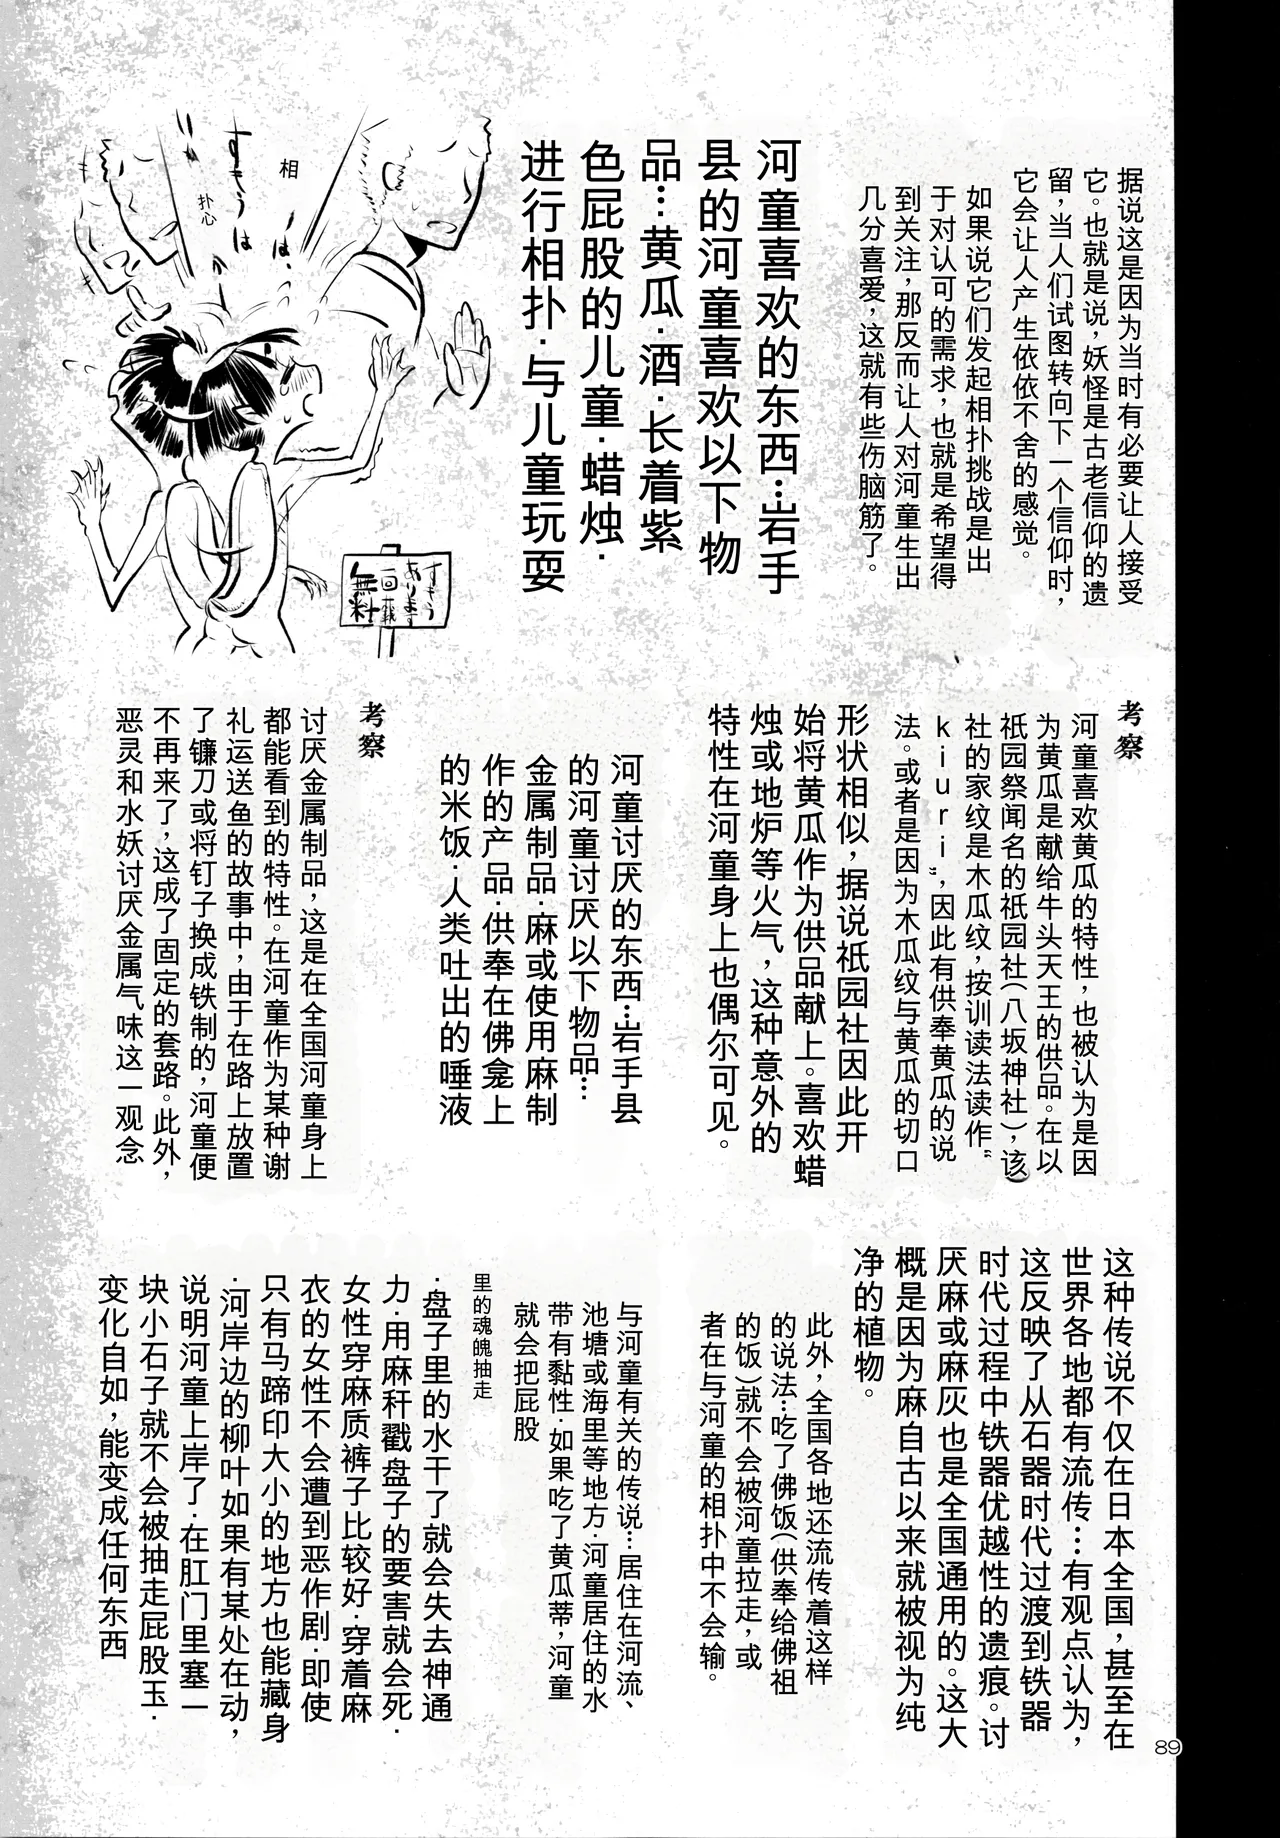 据说这是因为当时有必要让人接受
它。也就是说，妖怪是古老信仰的遗
留，当人们试图转向下一个信仰时，
它会让人产生依依不舍的感觉。
如果说它们发起相扑挑战是出
于对认可的需求，也就是希望得
到关注，那反而让人对河童生出
几分喜爱，这就有些伤脑筋了。
河童喜欢的东西…岩手
县的河童喜欢以下物
品…黄瓜·酒·长着紫
色屁股的儿童·蜡烛·
进行相扑·与儿童玩耍
相
扑心
すもうは…
すもう
あります
一回一銭
無料
考察
河童喜欢黄瓜的特性，也被认为是因
为黄瓜是献给牛头天王的供品。在以
祇园祭闻名的祇园社（八坂神社），该
社的家纹是木瓜纹，按训读法读作“
kiuri”，因此有供奉黄瓜的说
法。或者是因为木瓜纹与黄瓜的切口
形状相似，据说祇园社因此开
始将黄瓜作为供品献上。喜欢蜡
烛或地炉等火气，这种意外的
特性在河童身上也偶尔可见。
河童讨厌的东西…岩手县
的河童讨厌以下物品…
金属制品·麻或使用麻制
作的产品·供奉在佛龛上
的米饭·人类吐出的唾液
考察
讨厌金属制品，这是在全国河童身上
都能看到的特性。在河童作为某种谢
礼运送鱼的故事中，由于在路上放置
了镰刀或将钉子换成铁制的，河童便
不再来了，这成了固定的套路。此外，
恶灵和水妖讨厌金属气味这一观念
这种传说不仅在日本全国，甚至在
世界各地都有流传…有观点认为，
这反映了从石器时代过渡到铁器
时代过程中铁器优越性的遗痕。讨
厌麻或麻灰也是全国通用的。这大
概是因为麻自古以来就被视为纯
净的植物。
此外，全国各地还流传着这样
的说法…吃了佛饭（供奉给佛祖
的饭）就不会被河童拉走，或
者在与河童的相扑中不会输。
与河童有关的传说…居住在河流、
池塘或海里等地方·河童居住的水
带有黏性·如果吃了黄瓜蒂，河童
就会把屁股
里的魂魄抽走
·盘子里的水干了就会失去神通
力·用麻秆戳盘子的要害就会死·
女性穿麻质裤子比较好·穿着麻
衣的女性不会遭到恶作剧·即使
只有马蹄印大小的地方也能藏身
·河岸边的柳叶如果有某处在动，
说明河童上岸了·在肛门里塞一
块小石子就不会被抽走屁股玉·
变化自如，能变成任何东西
89